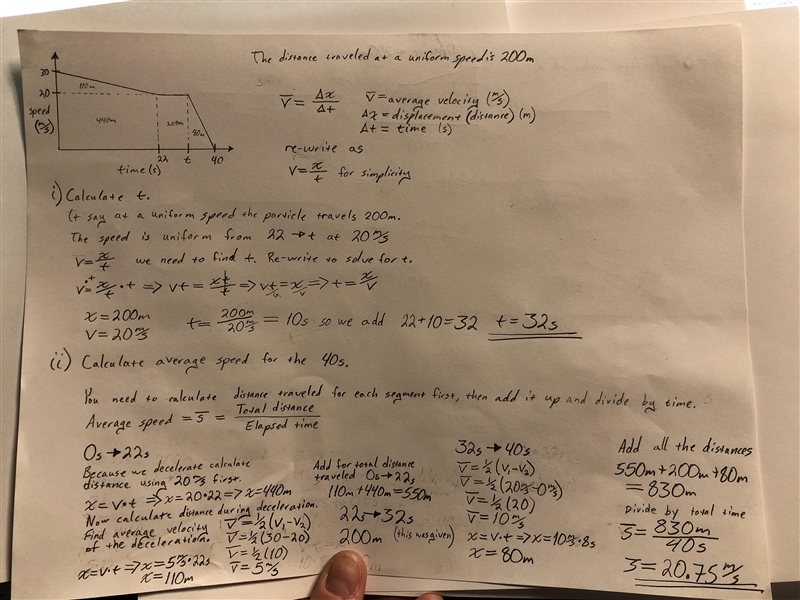 The distance traveled at a uniform speed is 200m
30
20
speed
(m/s)
110m
440m
200m
80m
22
t
40
time(s)
V̅ = Δx/Δt
V̅ = average velocity (m/s)
Δx = displacement (distance) (m)
Δt = time (s)
re-write as
V = x/t for simplicity
i) Calculate t.
It say at a uniform speed the particle travels 200m.
The speed is uniform from 22 → t at 20 m/s
V̅ = x/t we need to find t. Re-write to solve for t.
V·t = x/t · t => Vt = xt/t => Vt/V = x/V => t = x/V
x = 200m
V = 20 m/s
t = 200m/20 m/s = 10s so we add 22+10=32 t = 32s
ii) Calculate average speed for the 40s.
You need to calculate distance traveled for each segment first, then add it up and divide by time.
Average speed = s̅ = Total distance/Elapsed time
0s → 22s
Because we decelerate calculate
distance using 20 m/s first.
x = v·t => x = 20·22 => x = 440m
Now calculate distance during deceleration.
Find average velocity
of the deceleration.
V̅ = ½(V₁-V₂)
V̅ = ½(30-20)
V̅ = ½(10)
V̅ = 5 m/s
x = v·t => x = 5 m/s · 22s
x = 110m
Add for total distance
traveled 0s → 22s
110m + 440m = 550m
22s → 32s
200m (this was given)
32s → 40s
V̅ = ½(V₁-V₂)
V̅ = ½(20 m/s - 0 m/s)
V̅ = ½(20)
V̅ = 10 m/s
x = v·t => x = 10 m/s · 8s
x = 80m
Add all the distances
550m + 200m + 80m
= 830m
Divide by total time
s̅ = 830m/40s
s̅ = 20.75 m/s